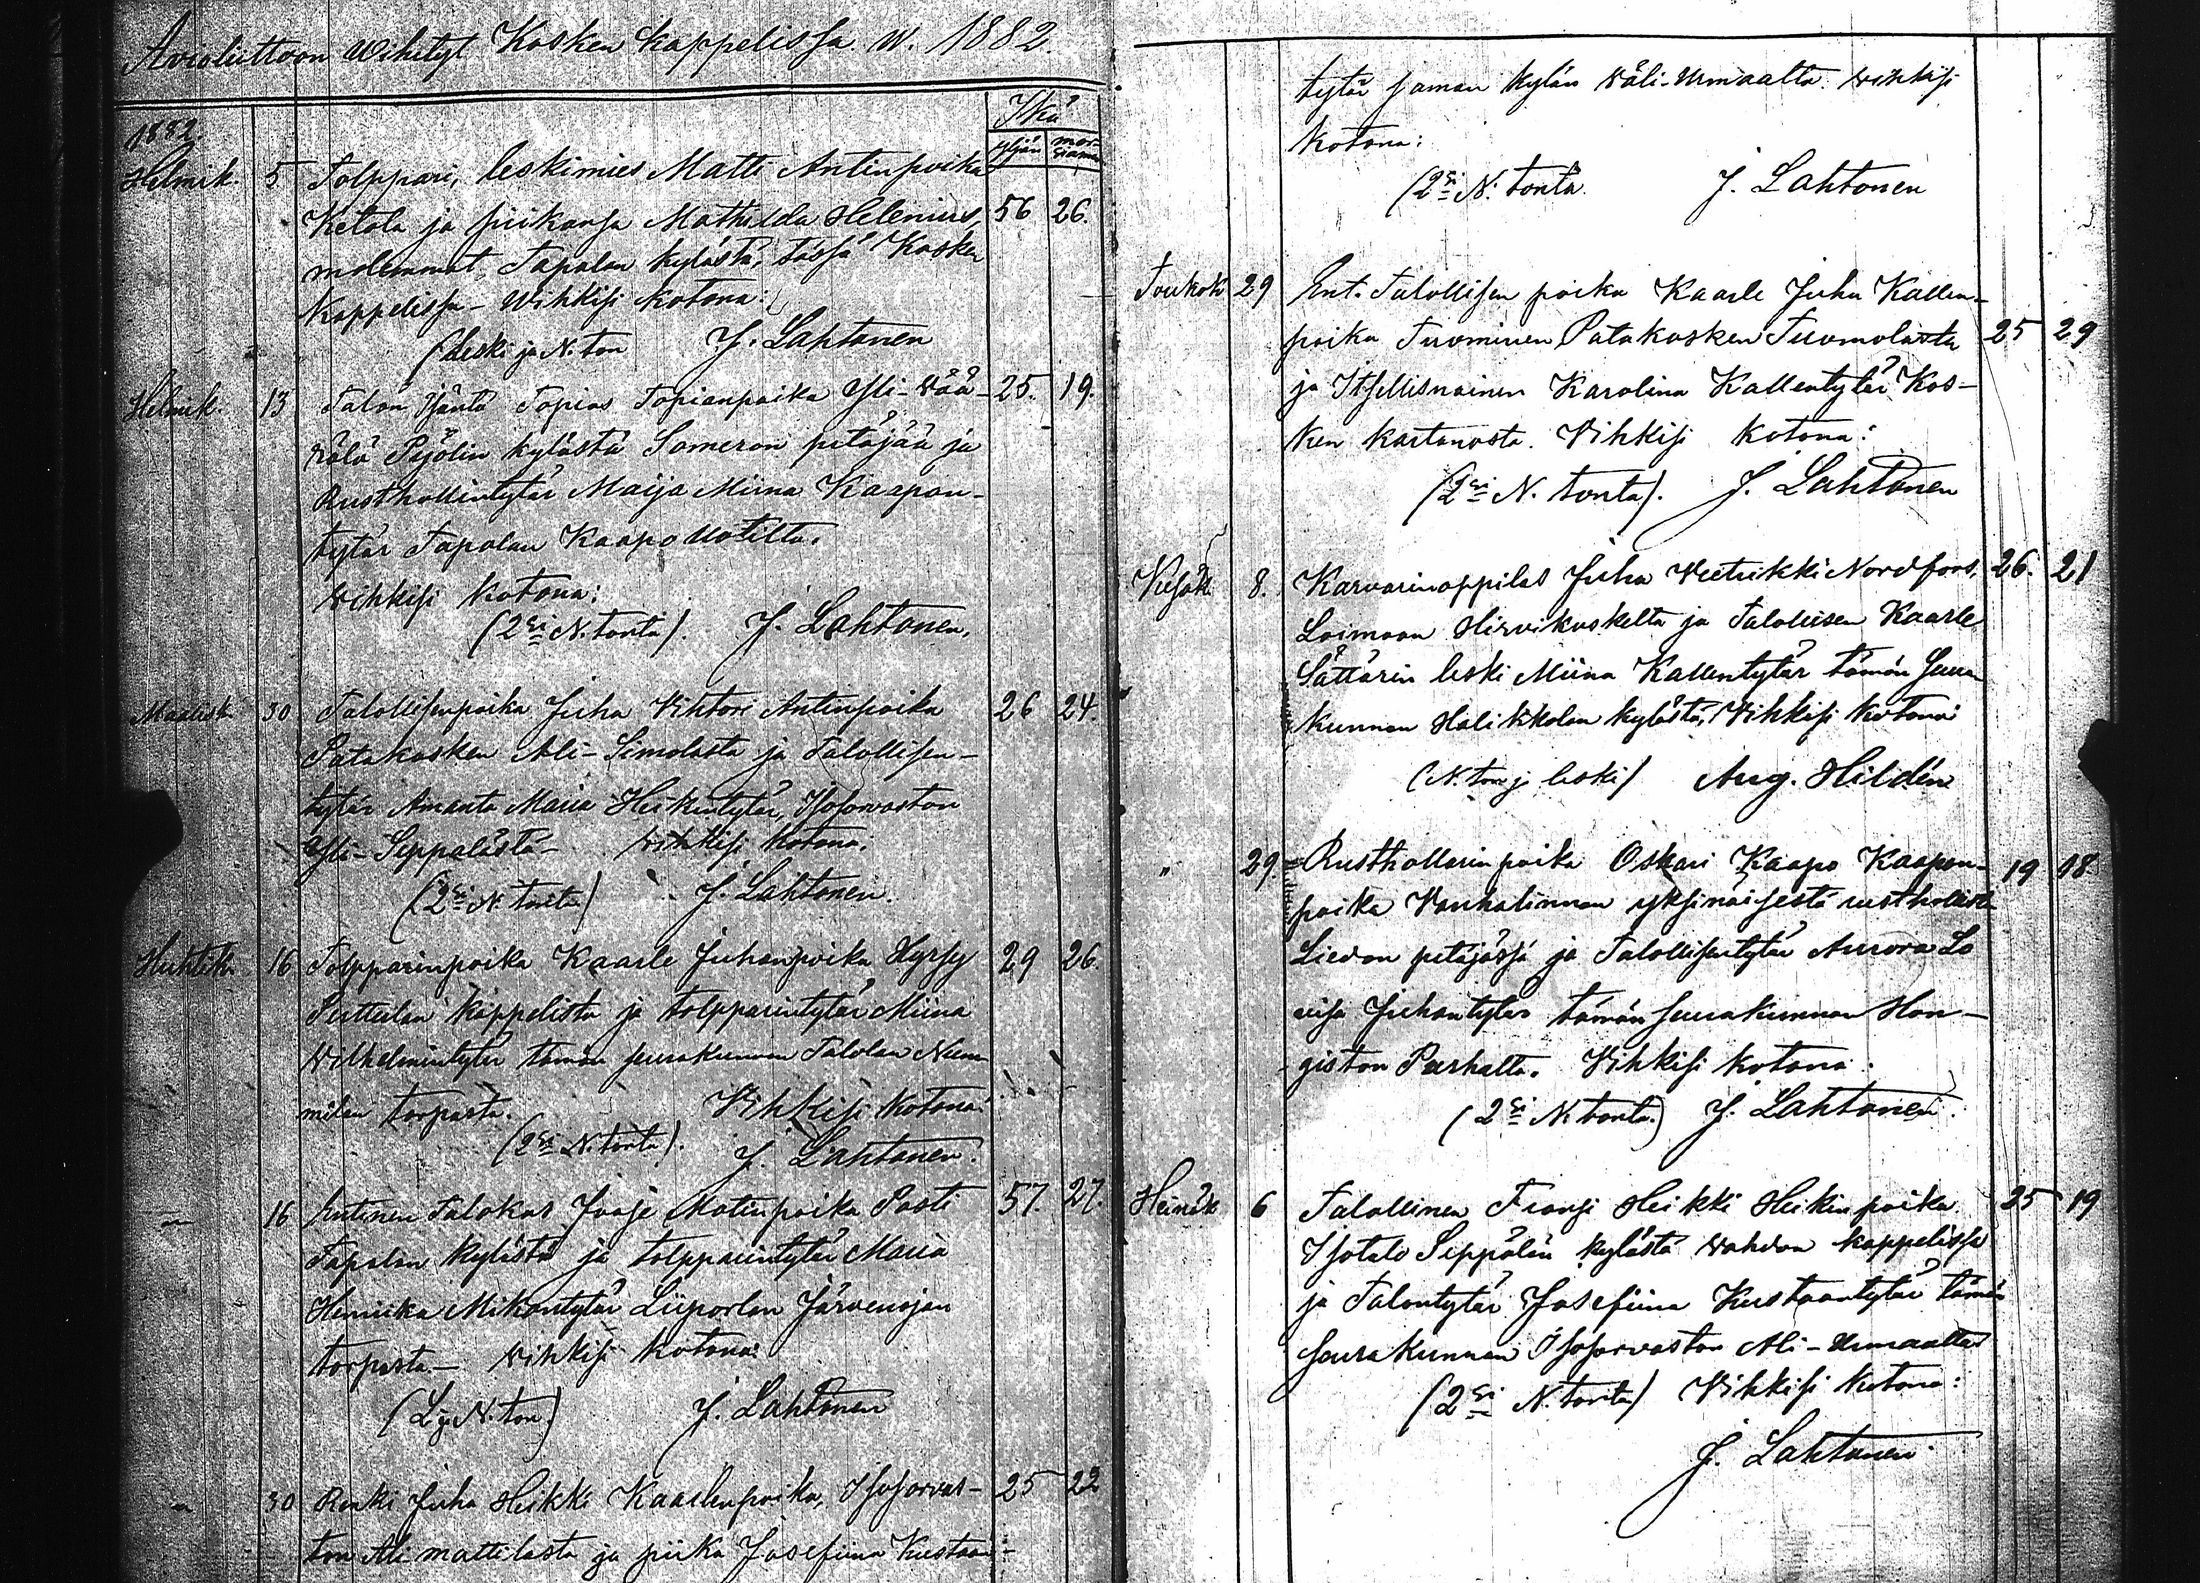 Avioliittoon Wihityt Kosken kappelissa w. 1882.
Ikä
1882. yljän mor-siamen
Helmik. 5 Tolppari, leskimies Matti Antinpoika
Ketola ja piikansa Mathilda Helenius, 56 26.
molemmat Tapalan kylästä, tässä Kosken
Kappelissa – Wihkisi kotona:
(leski ja N. ton J. Lahtonen
Helmik. 13 Talon Isäntä Topias Topianpoika Yli-Wää- 25. 19.
rälä Pajulin kylästä Someron pitäjää ja
Rusthollintytär Maija Miina Kaapon-
tytär Tapalan Kaapo Uotilta.
Wihkisi kotona:
(2si N. tonta). J. Lahtonen.
Maalisk. 30 Talollisenpoika Juha Vihtori Antinpoika 26 24.
Patakosken Ali-Simolasta ja Talollisen-
tytär Amanta Maria Heikintytär, Isosorvaston
Yli-Seppälästä – Wihkisi kotona:
(2si N. tonta) J. Lahtonen.
Huhtik. 16 Tolpparinpoika Kaarle Juhanpoika Hyrsy 29 26.
Perttulan kappelista ja tolpparintytär Miina
Wilhelmintytär tämän seurakunnan Talolan Num-
milan torpasta. Vihkisi kotona:
(2si N. tonta). J. Lahtonen.
" 16 Entinen Talokas Juoje Matinpoika Posti 57. 27.
Tapalan kylästä ja tolpparintytär Maria
Henrika Mikontytär Liiporlan Järvenojan
torpasta – Wihkisi kotona:
(L. ja N. ton) J. Lahtonen
" 30 Renki Juha Heikki Kaarlenpoika, Isosorvas- 25 22
ton Ali mattilasta ja piika Josefiina Kustaan-
tytär saman kylän Väli-Urmaalta. Wihkisi
kotona:
(2si N. tonta. J. Lahtonen
Toukok. 29 Ent. Talollisen poika Kaarle Juha Kallen-
poika Tuominen Patakosken Tuomolasta 25 29
ja Itsellisnainen Karolina Kallentytär Kos-
ken kartanosta. Vihkisi kotona:
(2si N. tonta). J. Lahtonen
Kesäk. 8. Karvarinoppilas Juha Vietrikki Nordfors, 26. 21
Loimaan Hirvikoskelta ja Talollisen Kaarle
Sättärin leski Miina Kallentytär tämän Seura
kunnan Halikkolan kylästä, Vihkisi kotona:
(N. ton ja leski) Aug. Hildén
" 29. Rusthollarinpoika Oskari Kaapo Kaapon- 19 18.
poika Vanhalinnan yksinäisestä rusthollista
Liedon pitäjässä ja Talollisentytär Aurora Lo
viisa Juhantytär tämän seurakunnan Hon-
giston Perhalta. Vihkisi kotona:
(2si N. tonta.) J. Lahtonen.
Heinäk. 6 Talollinen Fransi Heikki Heikinpoika 25 19
Isotalo Seppälän kylästä Wahdon kappelissa
ja Talontytär Josefiina Kustaantytär tämän
seurakunnan Isosorvaston Ali-Urmaalta
(2si N. tonta) Vihkisi kotona:
J. Lahtonen.